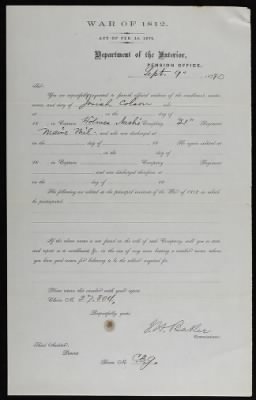 WAR OF 1812.
ACT OF FEB. 14, 1871.
Department of the Interior,
PENSION OFFICE,
Sept. 9, 1880
Sir:
You are respectfully requested to furnish official evidence of the enlistment, muster,
name, and day of Josiah Colson who
at in the day of
18 in Captain Holmes Nash's Company, 21st Regiment
Maine Mil. and who was discharged at
on the day of 18 He again enlisted at
on the day of
18 in Captain Company Regiment
and was discharged therefrom at
on the day of 18
The following are stated as the principal events of the War of 1812 in which he
participated:
If the above name is not found on the rolls of said Company, will you so state,
and report as to
you have good for believing to be the soldier inquired for.
Please return this circular with your report.
Claim No. 27,804,
Respectfully yours,
J. H. Baker
Commissioner.
Third Auditor,
Present
Room No.